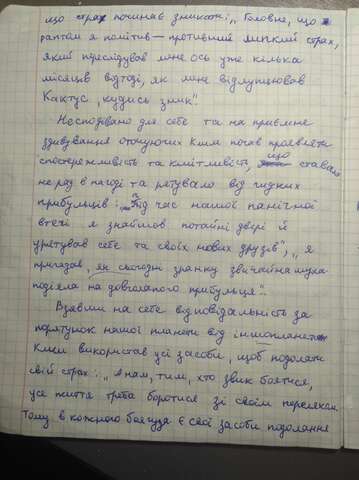 що страх починає зникати: „Головне, що я
раптом я помітив — противний липкий страх,
який преслідував мене ось уже кілька
місяців відтоді, як мене відлупцював
Кактус, кудись зник".
Несподівано для себе та на приємне
здивування оточуючих Клим почав проявляти
спостережливість та кмітливість, що ставало
не раз в нагоді та рятувало від чужих
прибульців: „Під час нашої панічної
втечі я знайшов потайні двері й
урятував себе та своїх нових друзів", „я
пригадав, як сьогодні зранку звичайна муха
подіяла на довгалого прибульця".
Взявши на себе відповідальність за
порятунок нашої планети від іншопланетян
Клим використав усі засоби, щоб подолати
свій страх: „А нам, тим, хто звик боятися,
усе життя треба боротися зі своїм переляком.
Тому в кожного боягуза є свої засоби подолання